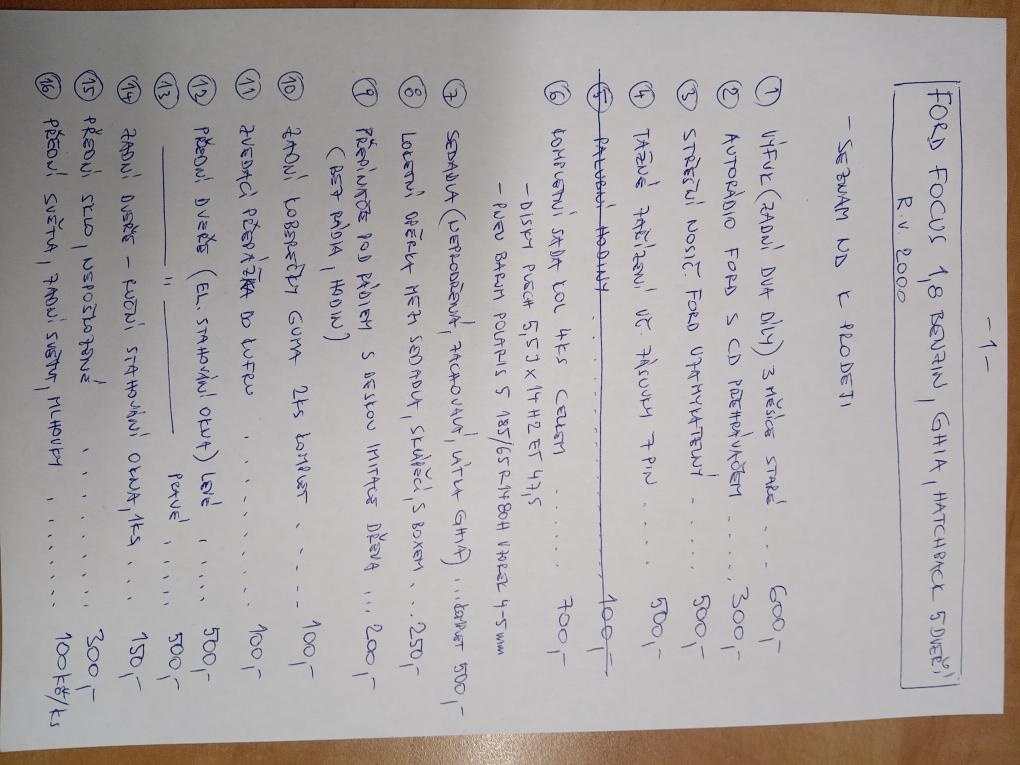 - 1 -
FORD FOCUS 1,8 BENZIN, GHIA, HATCHBACK 5 DVEŘÍ
R.V. 2000
- SEZNAM ND K PRODEJI
① VÝFUK (ZADNÍ DVA DÍLY) 3 MĚSÍCE STARÉ ... 600,-
② AUTORÁDIO FORD S CD PŘEHRÁVAČEM ..... 300,-
③ STŘEŠNÍ NOSIČ FORD UZAMYKATELNÝ ..... 500,-
④ TAŽNÉ ZAŘÍZENÍ VČ. ZÁSUVKY 7 PIN .... 500,-
⑤ PALUBNÍ HODINY .......... 100,-
⑥ KOMPLETNÍ SADA KOL 4KS CELKEM ...... 700,-
- DISKY PLECH 5,5J x 14 H2 ET 47,5
- PNEU BARUM POLARIS 5 185/65R14 80H VZOREK 4-5 mm
⑦ SEDADLA (NEPRODŘENÁ, ZACHOVALÁ, LÁTKA GHIA) ... KOMPLET 500,-
⑧ LOKETNÍ OPĚRKA MEZI SEDADLA, SKLÁPĚCÍ, S BOXEM ... 250,-
⑨ PŘEPÍNAČE POD RÁDIEM, S DESKOU IMITACE DŘEVA ... 200,-
(BEZ RÁDIA, HODIN)
⑩ ZADNÍ KOBEREČKY GUMA 2KS KOMPLET ..... 100,-
⑪ ZVEDACÍ PŘEPÁŽKA DO KUFRU ........ 100,-
⑫ PŘEDNÍ DVEŘE (EL. STAHOVÁNÍ OKNA) LEVÉ ..... 500,-
⑬ ——— " ——— PRAVÉ ..... 500,-
⑭ ZADNÍ DVEŘE - RUČNÍ STAHOVÁNÍ OKNA, 1KS ... 150,-
⑮ PŘEDNÍ SKLO, NEPOŠKOZENÉ ........ 300,-
⑯ PŘEDNÍ SVĚTLA, ZADNÍ SVĚTLA, MLHOVKY ....... 100 Kč/KS